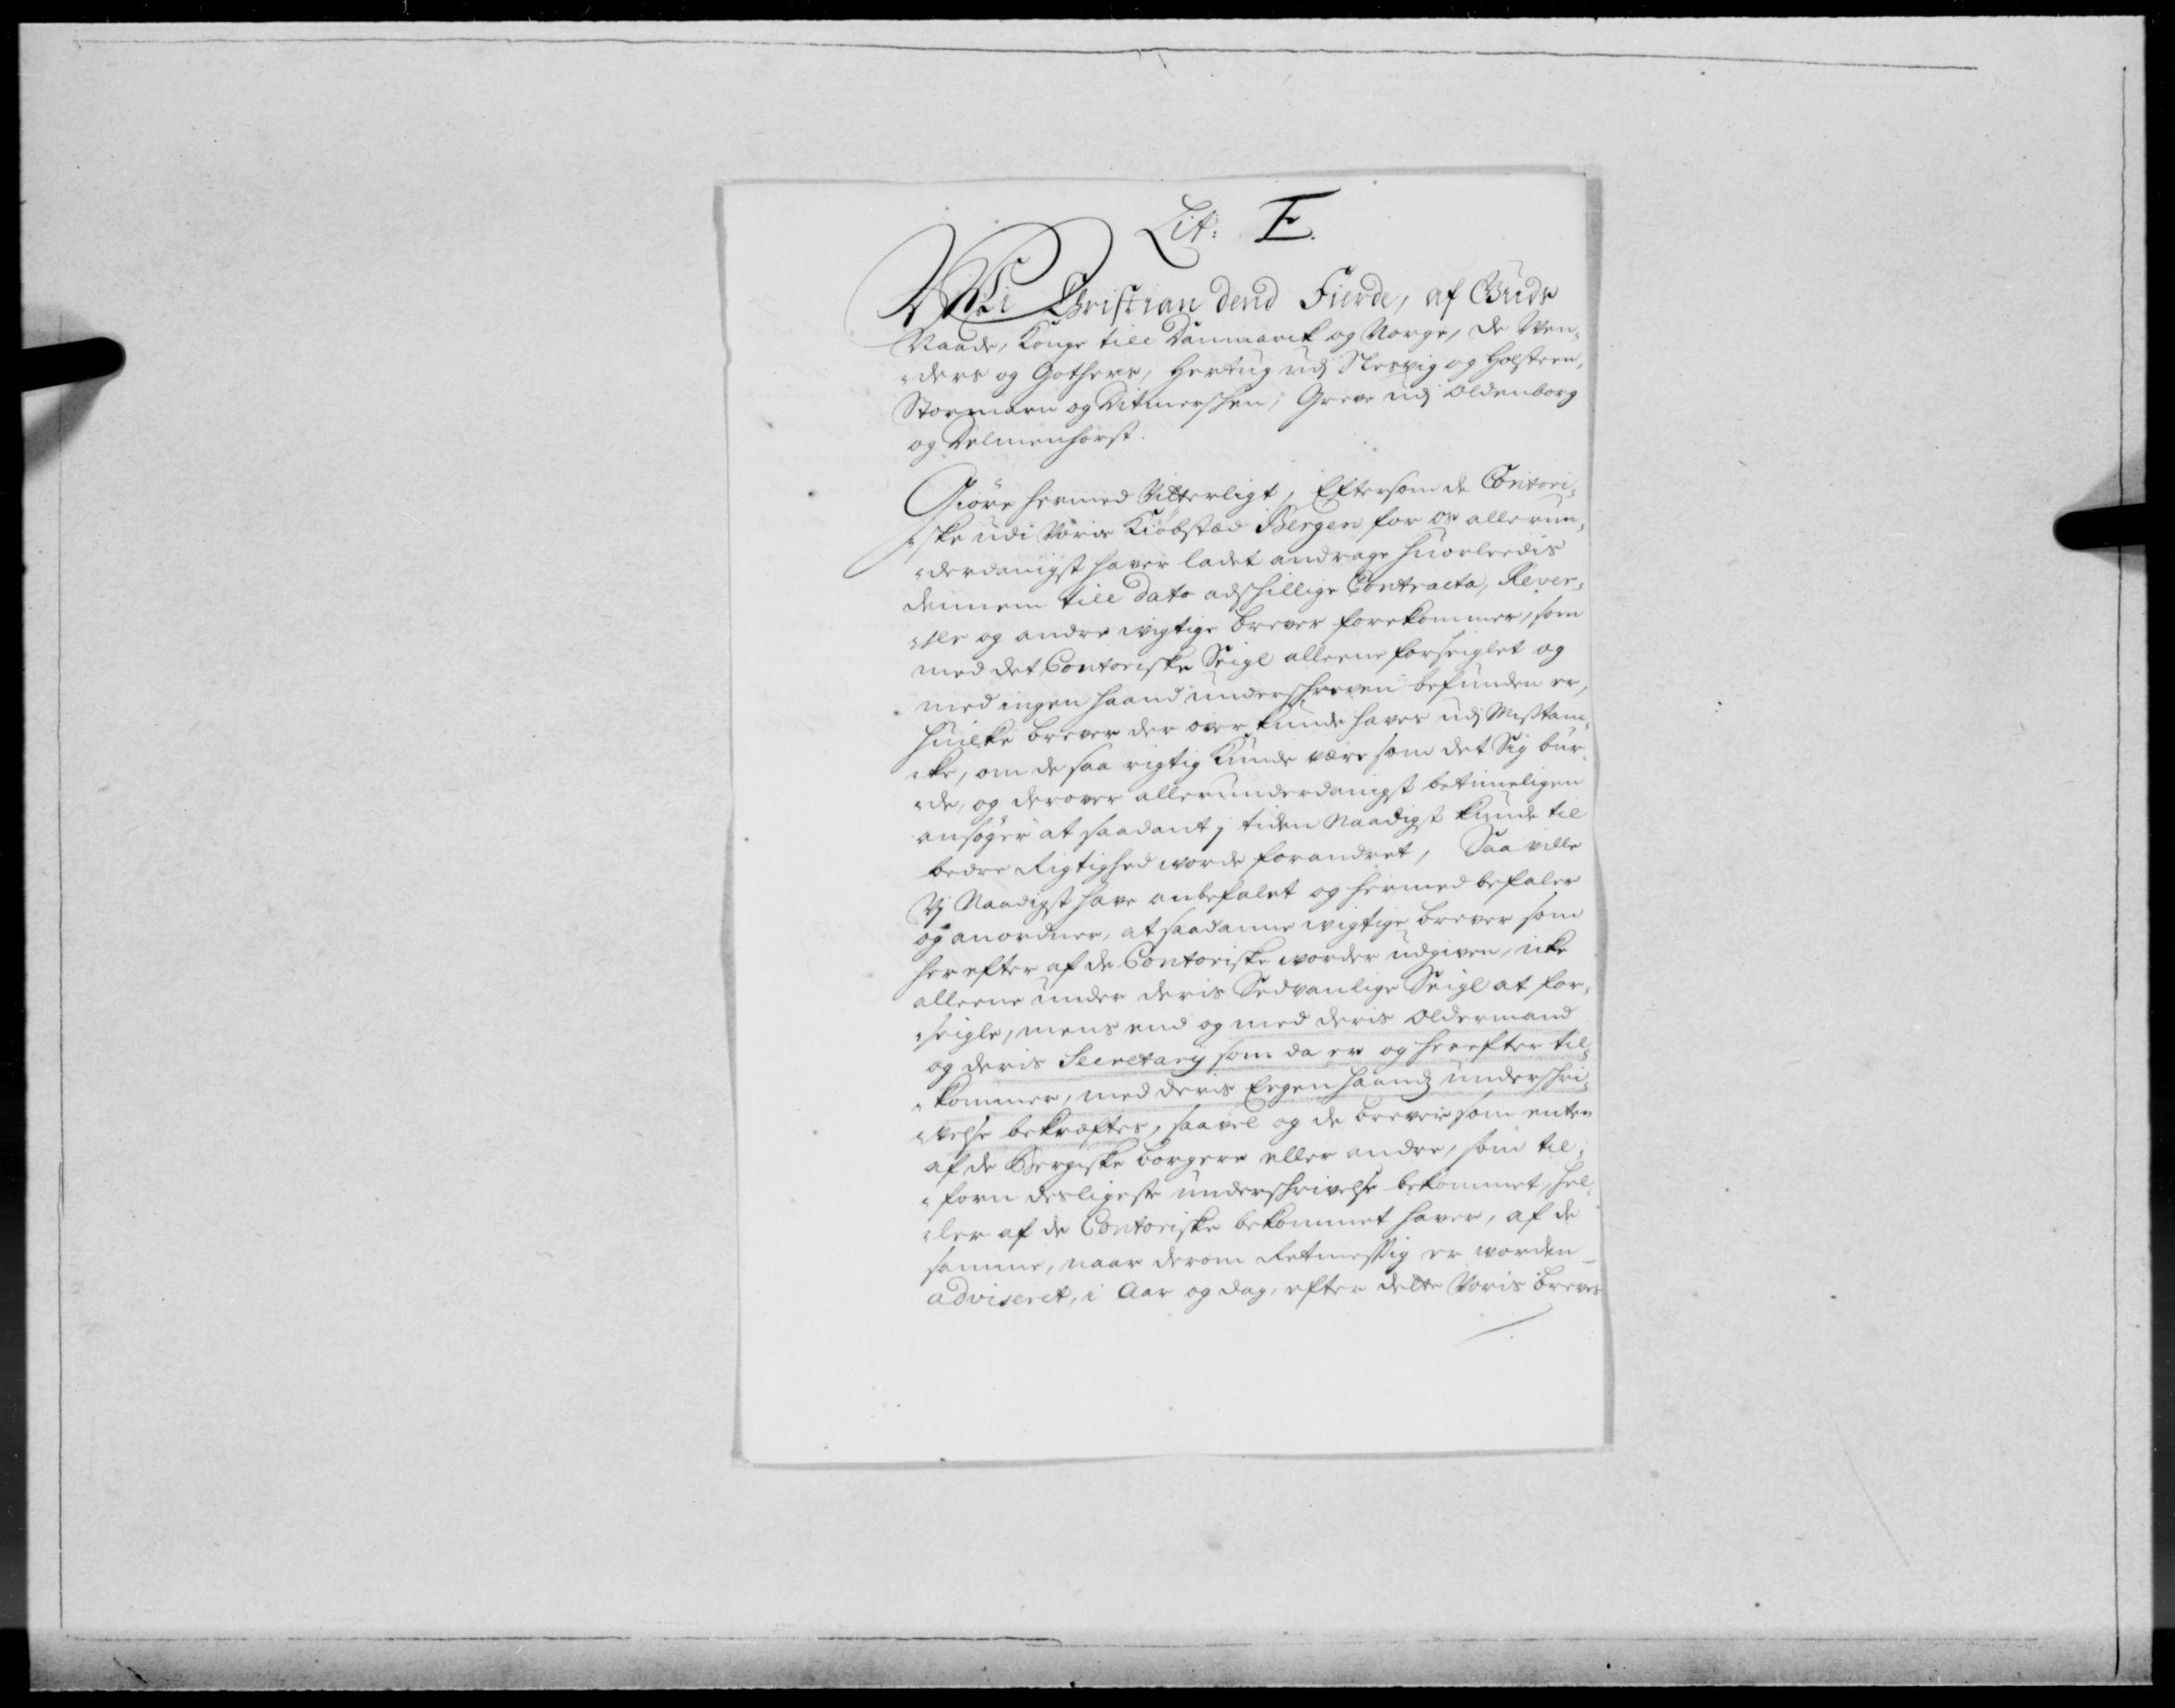 Lit: E.
Wi Christian dend Fierde, af Guds
Naade, Konge till Danmarck og Norge, de Wen¬
"ders og Gothers, Hertug udj Slesvig og Holsteen,
Stormarn og Ditmerschen, Greve udj Oldenborg
og Delmenhorst.
Giöre hermed Vitterligt, Eftersom de Contori¬
"ske udi Voris Kiöbstæd Bergen for os allerun¬
"derdanigst haver ladet andrage huorleedis
dennem till dato adschillige Contracta, Rever¬
"ser og andre wigtige brever forekommer, som
med det Contoriske Seigl alleene forseiglet og
med ingen haand underschreven befunden er,
huilcke breve der over kunde haves udj Mistan¬
"cke, om de saa rigtig kunde være som det Sig bur¬
"de, og derover allerunderdanigst betimeligen
ansöger at saadant j tiden Naadigst kunde til
bedre Rigtighed worde forandret, Saa ville
Vj Naadigst have anbefalet og hermed befaler
og anordner, at saadanne wigtige breve som
her efter af de Contoriske worder udgiven, icke
alleene under deris Sedvanlige Seigl at for¬
"seigle, mens end og med deris Oldermand
og deris Secretary som da er og herefter til¬
"kommer, med deris Eegen haands underschri¬
"velse bekræftes, saavel og de breve som enten
af de Bergiske borgere eller andre, som til¬
"forn desligeste underschrivelse bekommet, hel¬
"ler af de Contoriske bekommet haver, af de
samme, naar derom Retmessig er worden
adviseret, i Aar og dag, efter dette Voris breves